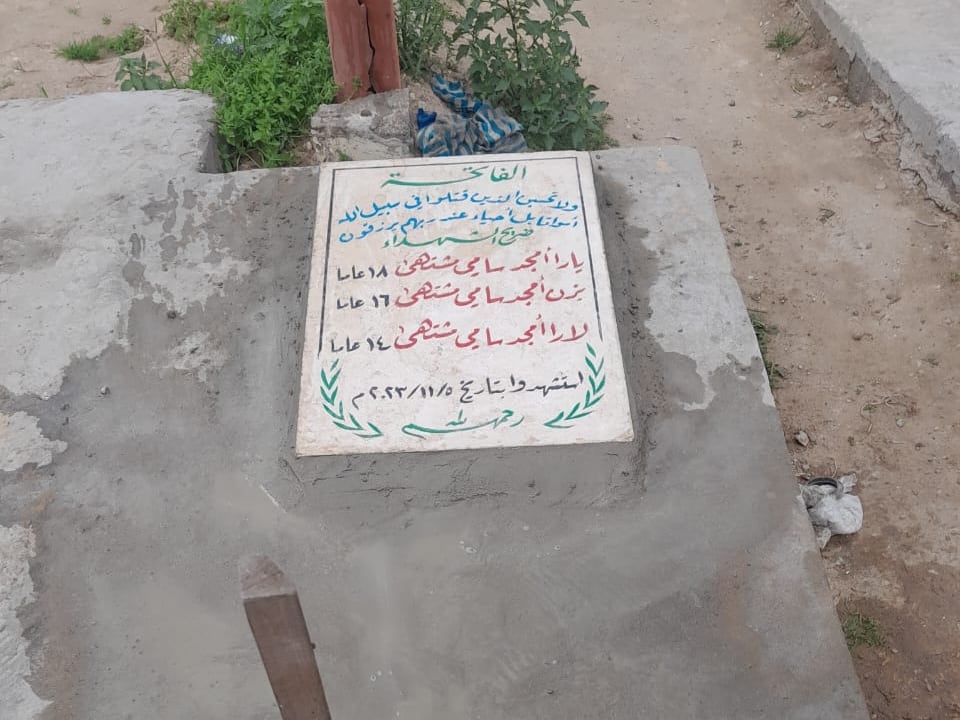 الفاتحة
ولا تحسبن الذين قتلوا في سبيل الله
أمواتا بل أحياء عند ربهم يرزقون
ضريح الشهداء
يارا أمجد سامي مشتهى ١٨ عاما
يزن أمجد سامي مشتهى ١٦ عاما
لارا أمجد سامي مشتهى ١٤ عاما
استشهدوا بتاريخ ٢٠٢٣/١١/٥م
رحمهم الله